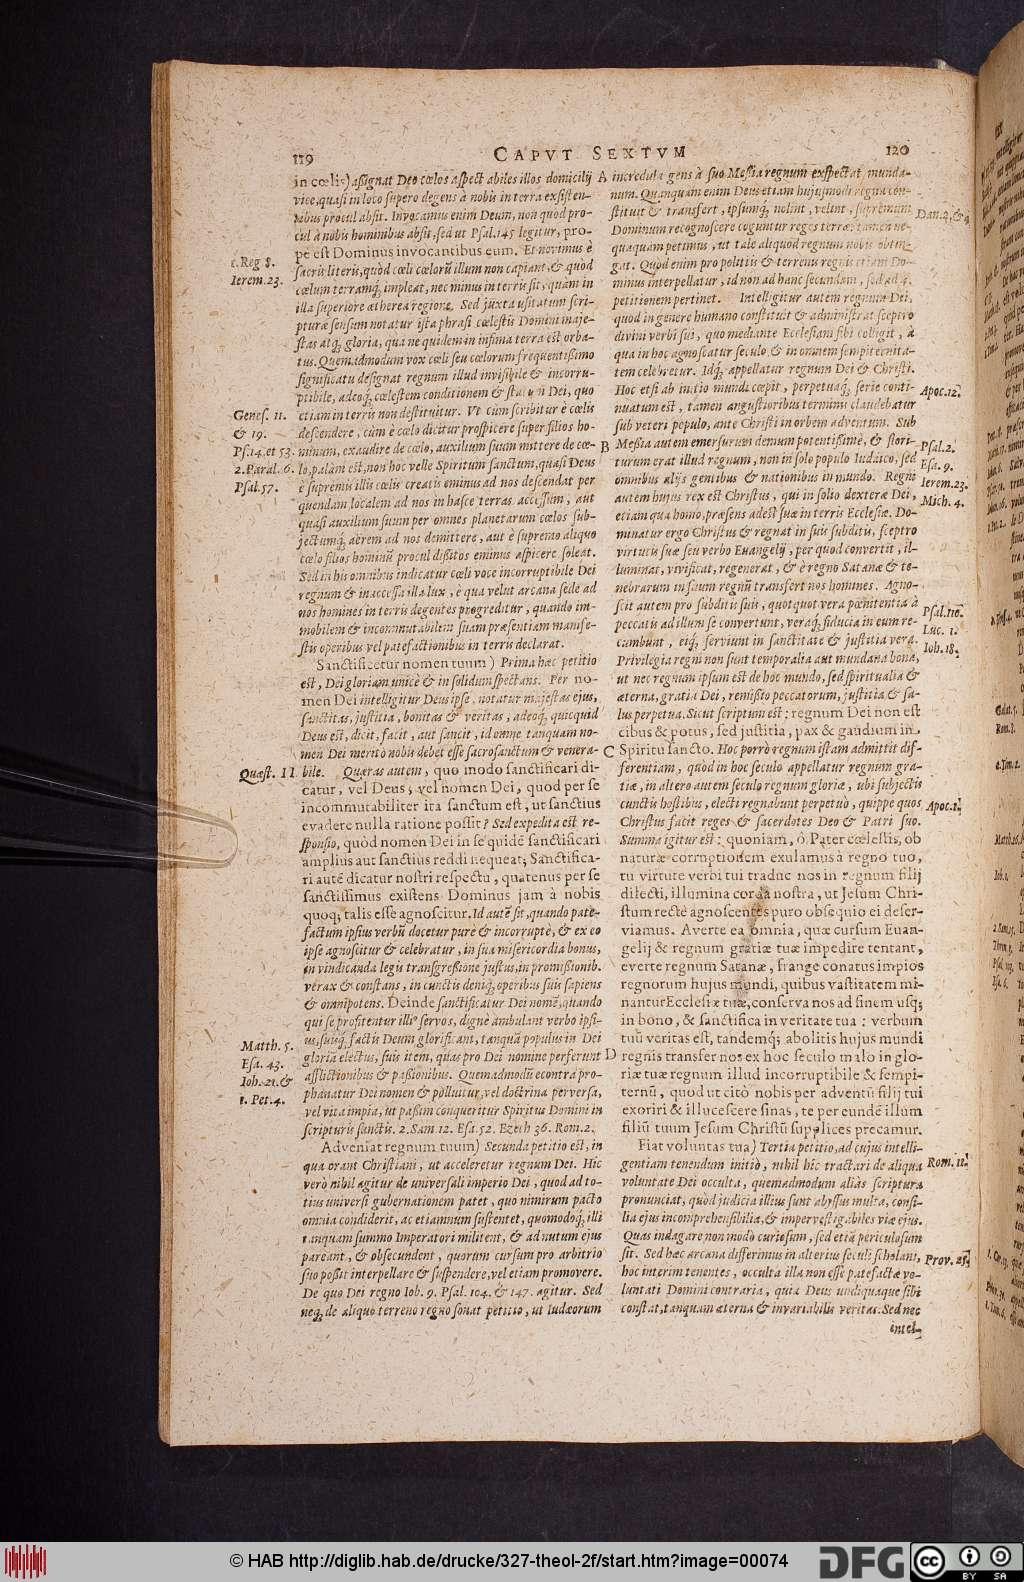 119
CAPVT SEXTVM
120
in cœlis) aßignat Deo cœlos aspectabiles illos domicilij
vice, quasi in loco supero degens à nobis in terra existen-
tibus procul absit. Invocamus enim Deum, non quod pro-
cul à nobis hominibus absit, sed ut Psal. 145 legitur, pro-
pe est Dominus invocantibus eum. Et novimus è
sacris literis, quòd cœli cœlorũ illum non capiant, & quòd
cœlum terramq́; impleat, nec minus in terris sit, quàm in
illa superiore ætherea regione. Sed juxta usitatum scri-
pturæ sensum notatur ista phrasi cœlestis Domini maje-
stas atq́; gloria, qua ne quidem in infima terra est orba-
tus. Quemadmodum vox cœli seu cœlorum frequentißimo
significatu designat regnum illud invisibile & incorru-
ptibile, adeoq́; cœlestem conditionem & statum Dei, quo
etiam in terris non destituitur. Vt cùm scribitur è cœlis
descendere, cùm è cœlo dicitur prospicere super filios ho-
minum, exaudire de cœlo, auxilium suum mittere de cœ-
lo, palàm est, non hoc velle Spiritum sanctum, quasi Deus
è supremis illis cœlis creatis eminus ad nos descendat per
quendam localem ad nos in hasce terras accessum, aut
quasi auxilium suum per omnes planetarum cœlos sub-
jectumq́; aërem ad nos demittere, aut è supremo aliquo
cœlo filios hominũ procul dißitos eminus aspicere soleat.
Sed in his omnibus indicatur cœli voce incorruptibile Dei
regnum & inaccessa illa lux, è qua velut arcana sede ad
nos homines in terris degentes progreditur, quando im-
mobilem & incommutabilem suam præsentiam manife-
stis operibus vel patefactionibus in terris declarat.
Sanctificetur nomen tuum) Prima hæc petitio
est, Dei gloriam unicè & in solidum spectans. Per no-
men Dei intelligitur Deus ipse, notatur majestas ejus,
sanctitas, justitia, bonitas & veritas, adeoq́; quicquid
Deus est, dicit, facit, aut sancit, id omne tanquam no-
men Dei meritò nobis debet esse sacrosanctum & venera-
bile. Quæras autem, quo modo sanctificari di-
catur, vel Deus, vel nomen Dei, quod per se
incommutabiliter ita sanctum est, ut sanctius
evadere nulla ratione possit? Sed expedita est re-
sponsio, quòd nomen Dei in se quidẽ sanctificari
amplius aut sanctius reddi nequeat; Sanctifica-
ri autẽ dicatur nostri respectu, quatenus per se
sanctissimus existens Dominus jam à nobis
quoq; talis esse agnoscitur. Id autẽ fit, quando pate-
factum ipsius verbũ docetur purè & incorruptè, & ex eo
ipse agnoscitur & celebratur, in sua misericordia bonus,
in vindicanda legis transgreßione justus, in promißionib.
verax & constans, in cunctis deniq́; operibus suis sapiens
& omnipotens. Deinde sanctificatur Dei nomẽ, quando
qui se profitentur illiꝰ servos, dignè ambulant verbo ipsi-
us, suisq́; factis Deum glorificant, tanquã populus in Dei
gloriã electus, suis item, quas pro Dei nomine perferunt
afflictionibus & paßionibus. Quemadmodũ econtrà pro-
phanatur Dei nomen & polluitur, vel doctrina perversa,
vel vita impia, ut paßim conqueritur Spiritus Domini in
scripturis sanctis. 2. Sam 12. Esa. 52. Ezech 36. Rom. 2.
Adveniat regnum tuum) Secunda petitio est, in
qua orant Christiani, ut acceleretur regnum Dei. Hic
verò nihil agitur de universali imperio Dei, quod ad to-
tius universi gubernationem patet, quo nimirum pacto
omnia condiderit, ac etiamnum sustentet, quomodoq́; illi
tanquam summo Imperatori militent, & ad nutum ejus
pareant, & obsecundent, quorum cursum pro arbitrio
suo poßit interpellare & suspendere, vel etiam promovere.
De quo Dei regno Iob. 9. Psal. 104. & 147. agitur. Sed
neq́; de aliquo terreno regno sonat petitio, ut Iudæorum
1. Reg 8.
Ierem. 23.
Genes. 11.
& 19.
Ps. 14. et 53.
2. Paral. 6.
Psal. 57.
Quæst. 11
Matth. 5.
Esa. 43.
Ioh. 21. &
1. Pet. 4.
A
B
C
D
incredula gens à suo Meßia regnum exspectat munda-
num. Quanquam enim Deus etiam hujusmodi regna con-
stituit & transfert, ipsumq́; nolint, velint, supremum
Dominum recognoscere coguntur reges terræ: tamen ne-
quaquam petimus, ut tale aliquod regnum nobis obtin-
gat. Quòd enim pro politiis & terrenis regnis etiam Do-
minus interpellatur, id non ad hanc secundam, sed ad 4.
petitionem pertinet. Intelligitur autem regnum Dei,
quod in genere humano constituit & administrat sceptro
divini verbi sui, quo mediante Ecclesiam sibi colligit, à
qua in hoc agnoscatur seculo & in omnem sempiternita-
tem celebretur. Idq́; appellatur regnum Dei & Christi.
Hoc etsi ab initio mundi cœpit, perpetuaq́; serie conti-
nuatum est, tamen angustioribus terminis claudebatur
sub veteri populo, ante Christi in orbem adventum. Sub
Meßia autem emersurum demum potentißimè, & flori-
turum erat illud regnum, non in solo populo Iudaico, sed
omnibus alijs gentibus & nationibus in mundo. Regni
autem hujus rex est Christus, qui in solio dexteræ Dei,
etiam qua homo, præsens adest suæ in terris Ecclesiæ. Do-
minatur ergo Christus & regnat in suis subditis, sceptro
virtutis suæ seu verbo Euangelij, per quod convertit, il-
luminat, vivificat, regenerat, & è regno Satanæ & te-
nebrarum in suum regnũ transfert nos homines. Agno-
scit autem pro subditis suis, quotquot vera pœnitentia à
peccatis ad illum se convertunt, veraq́; fiducia in eum re-
cumbunt, eiq́; serviunt in sanctitate & justitia vera.
Privilegia regni non sunt temporalia aut mundana bona,
ut nec regnum ipsum est de hoc mundo, sed spiritualia &
æterna, gratia Dei, remißio peccatorum, justitia & sa-
lus perpetua. Sicut scriptum est: regnum Dei non est
cibus & potus, sed justitia, pax & gaudium in
Spiritu sancto. Hoc porrò regnum istam admittit dif-
ferentiam, quòd in hoc seculo appellatur regnum gra-
tiæ, in altero autem seculo regnum gloriæ, ubi subjectis
cunctis hostibus, electi regnabunt perpetuò, quippe quos
Christus facit reges & sacerdotes Deo & Patri suo.
Summa igitur est: quoniam, ô Pater cœlestis, ob
naturæ corruptionem exulamus à regno tuo,
tu virtute verbi tui traduc nos in regnum filij
dilecti, illumina corda nostra, ut Jesum Chri-
stum rectè agnoscentes puro obsequio ei deser-
viamus. Averte ea omnia, quæ cursum Euan-
gelij & regnum gratiæ tuæ impedire tentant,
everte regnum Satanæ, frange conatus impios
regnorum hujus mundi, quibus vastitatem mi-
nantur Ecclesiæ tuæ, conserva nos ad finem usq;
in bono, & sanctifica in veritate tua: verbum
tuũ veritas est, tandemq́; abolitis hujus mundi
regnis transfer nos ex hoc seculo malo in glo-
riæ tuæ regnum illud incorruptibile & sempi-
ternũ, quod ut citò nobis per adventũ filij tui
exoriri & illucescere sinas, te per eundẽ illum
filiũ tuum Jesum Christũ supplices precamur.
Fiat voluntas tua) Tertia petitio, ad cujus intelli-
gentiam tenendum initiò, nihil hîc tractari de aliqua
voluntate Dei occulta, quemadmodum aliàs scriptura
pronunciat, quòd judicia illius sunt abyssus multa, consi-
lia ejus incomprehensibilia, & impervestigabiles viæ ejus.
Quas indagare non modo curiosum, sed etiã periculosum
sit. Sed hæc arcana differimus in alterius seculi scholam,
hoc interim tenentes, occulta illa non esse patefactæ vo-
luntati Domini contraria, quia Deus undiquaque sibi
constat, tanquam æterna & invariabilis veritas. Sed nec
intel-
Dan. 2. & 4
Apoc. 12.
Psal. 2.
Esa. 9.
Ierem. 23.
Mich. 4.
Psal. 110.
Luc. 1.
Ioh. 18.
Apoc. 1.
Rom. 11.
Prov. 25.
© HAB http://diglib.hab.de/drucke/327-theol-2f/start.htm?image=00074
DFG
cc
BY SA